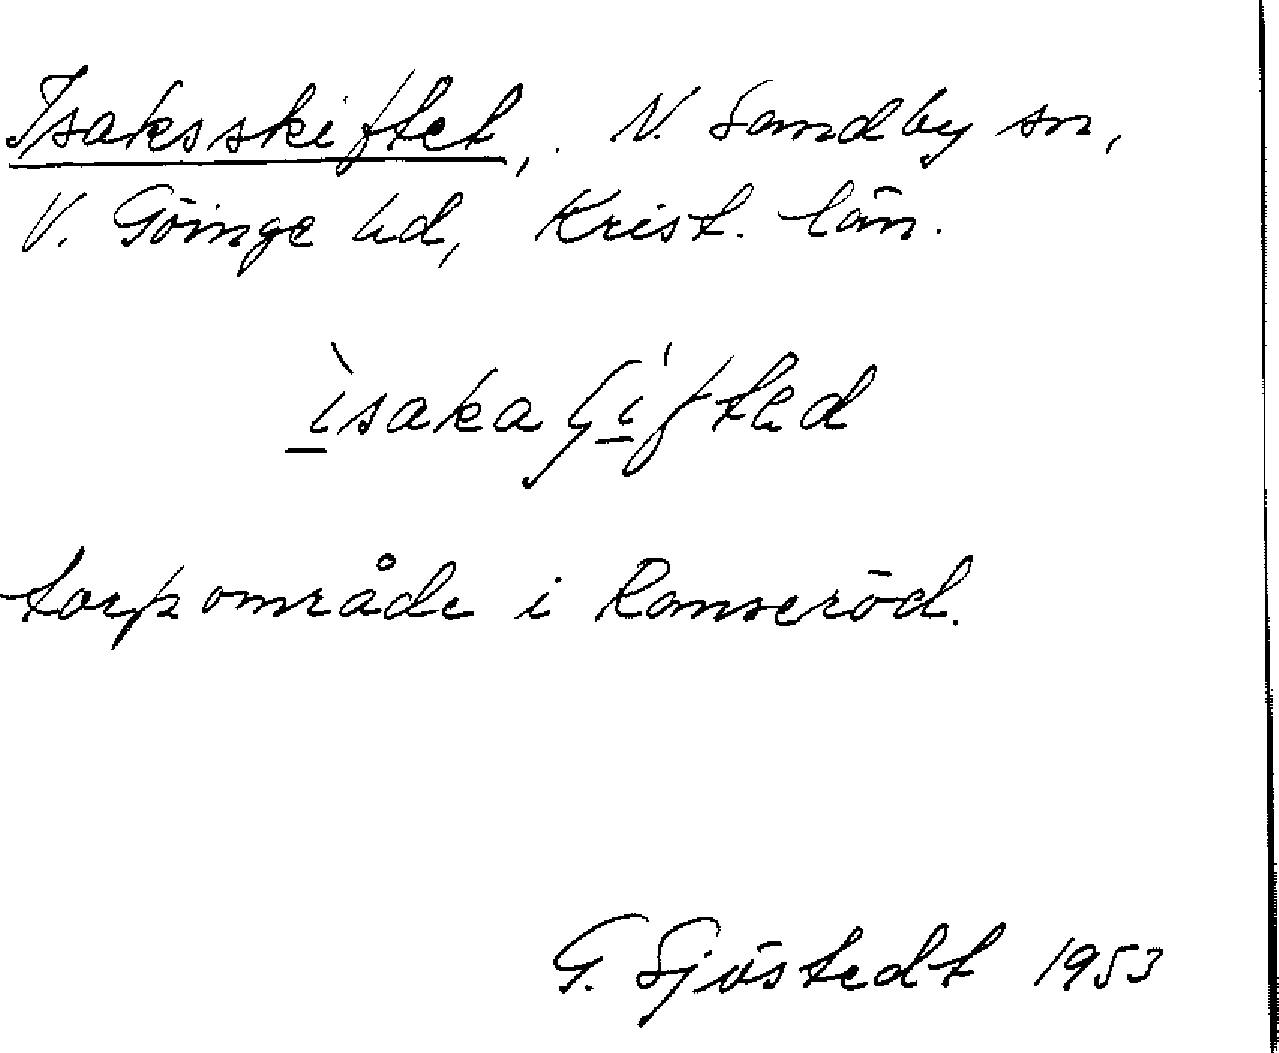 Isaksskiftet, N. Sandby sn,
V. Göinge hd, Krist. län.
ìsakaʃíftəd
torpområde i Ranseröd.
G. Sjöstedt 1953